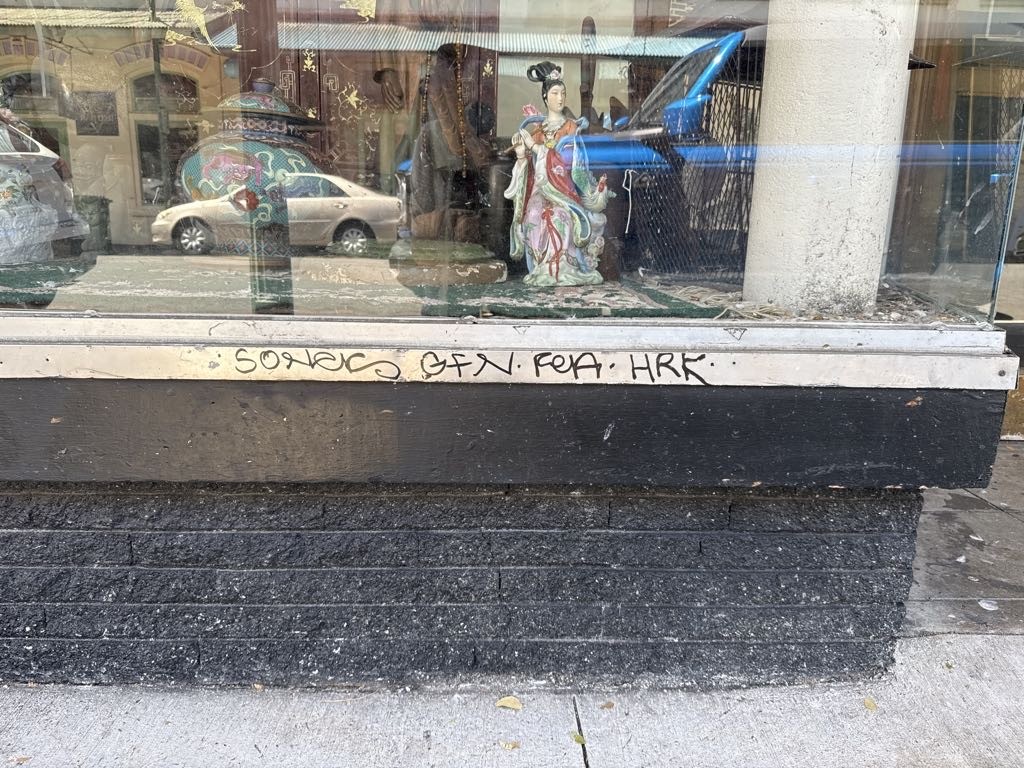 SONER GFN. FOA. HRK.